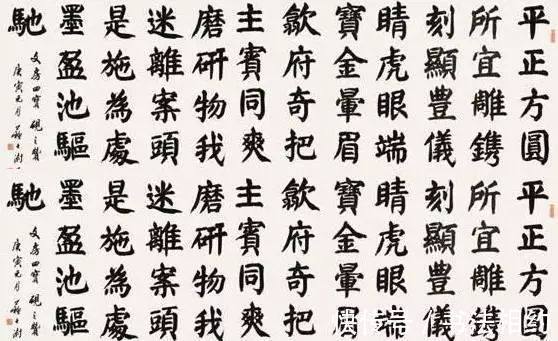 平正方圓
所宜雕鎸
刻顯豊儀
睛虎眼端
寶金暈眉
歙府奇把
主賓同爽
磨研物我
迷離案頭
是施為處
墨盈池驅
馳
文房四寶 硯之贊
庚寅元月 蘇士澍
平正方圓
所宜雕鎸
刻顯豊儀
睛虎眼端
寶金暈眉
歙府奇把
主賓同爽
磨研物我
迷離案頭
是施為處
墨盈池驅
馳
文房四寶 硯之贊
庚寅元月 蘇士澍